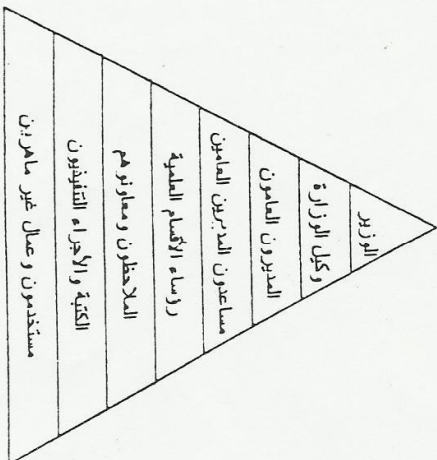 الوزير
وكيل الوزارة
المديرون العامون
مساعدون المديرين العامين
رؤساء الأقسام العلمية
الملاحظون ومعاونوهم
الكتبة والأجراء التنفيذيون
مستخدمون وعمال غير ماهرين